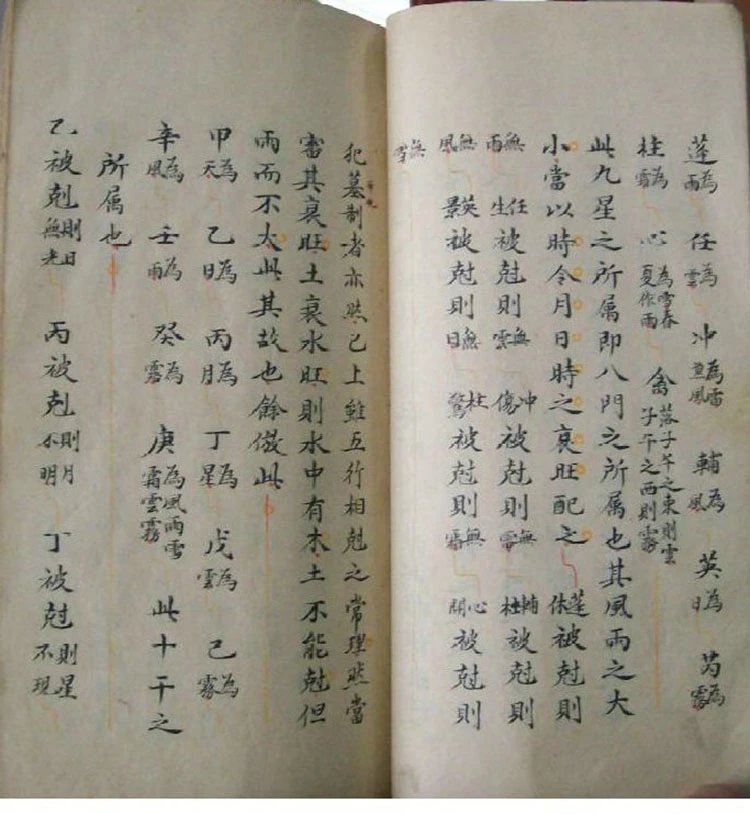 蓬為雨 任為雲 冲為雷並風 輔為風 英為日 芮為霧
柱為霜 心為雪春夏作雨 禽落子午之東則雲子午之西則霧
此九星之所属即八門之所属也其風雨之大
小當以時令月日時之衰旺配之 蓬休被尅則
無雨 任生被尅則無雲 冲傷被尅則無雷 輔杜被尅則
無風 英景被尅則無日 柱驚被尅則無霜 心開被尅則
無雪
犯墓制者亦然已上雖五行相尅之常理然當
審其衰旺土衰水旺則水中有木土不能尅但
雨而不太此其故也餘倣此
甲為天 乙為日 丙為月 丁為星 戊為雲 己為霧
辛為風 壬為雨 癸為露 庚為風雨雪霜雲霧 此十干之
所属也
乙被尅則日無光 丙被尅則月不明 丁被尅則星不現